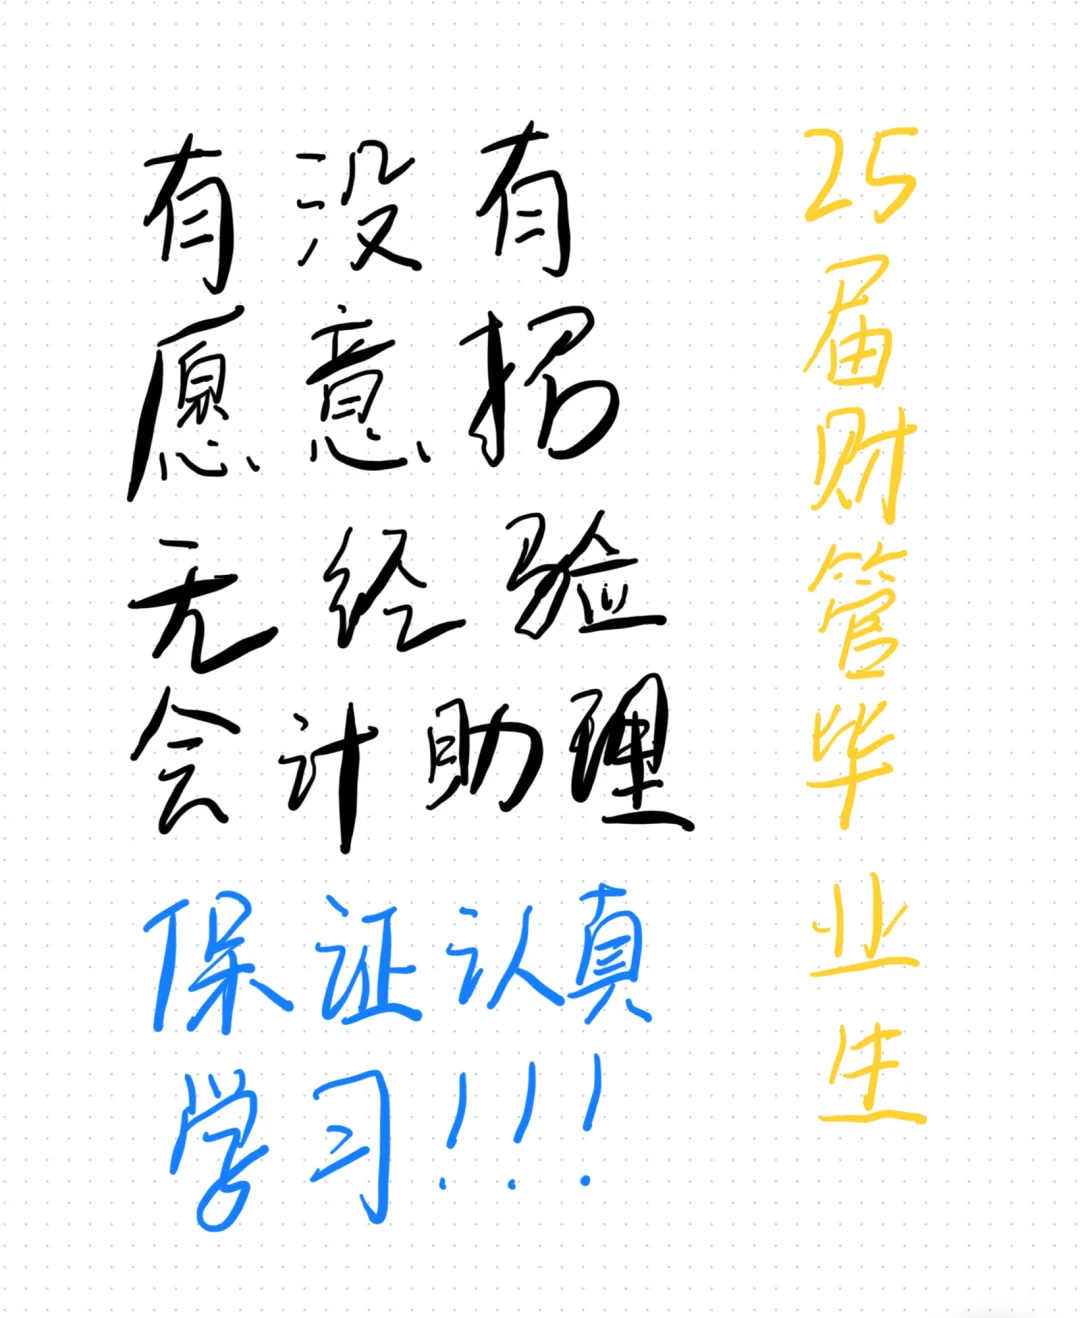 有没有
愿意招
无经验
会计助理
保证认真
学习!!!
25届财管毕业生